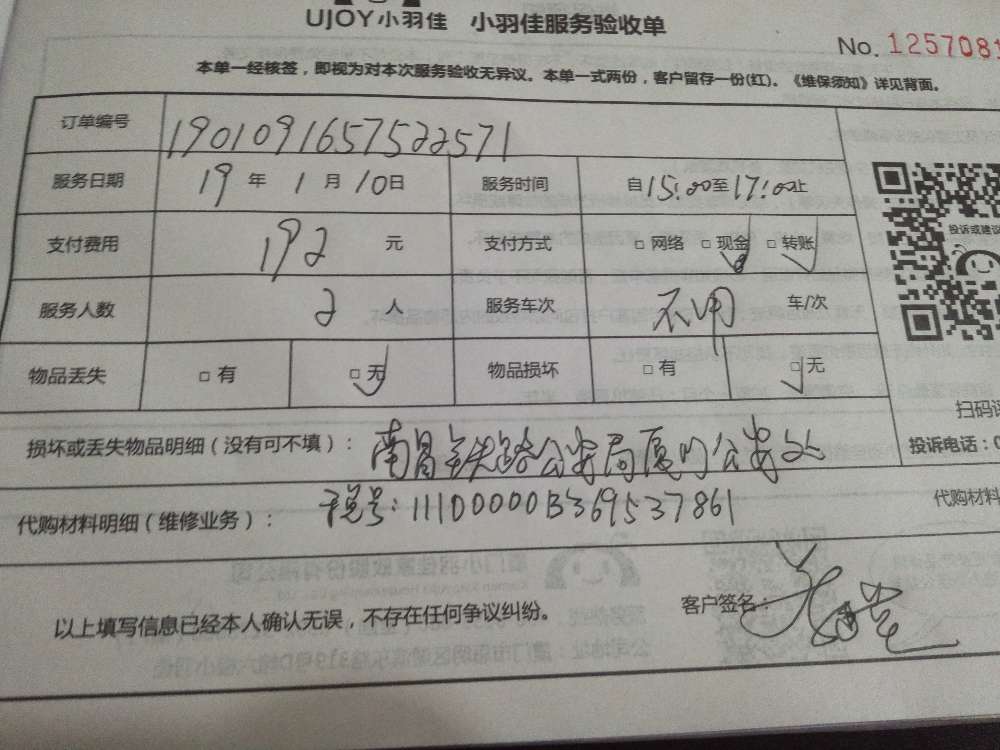 UJOY小羽佳 小羽佳服务验收单
No. 1257081
本单一经核签，即视为对本次服务验收无异议。本单一式两份，客户留存一份(红)。《维保须知》详见背面。
订单编号 1901091657522571
服务日期 19 年 1 月 10 日 服务时间 自15:00至17:00止
支付费用 192 元 支付方式 □ 网络 □ 现金 □ 转账
投诉或建议
服务人数 2 人 服务车次 不用 车/次
物品丢失 □ 有 □ 无 物品损坏 □ 有 □ 无
扫码
损坏或丢失物品明细（没有可不填）： 南昌铁路公安局厦门公安处
投诉电话：0
代购材料明细（维修业务）： 税号：11100000B369537861
代购材料
以上填写信息已经本人确认无误，不存在任何争议纠纷。 客户签名：